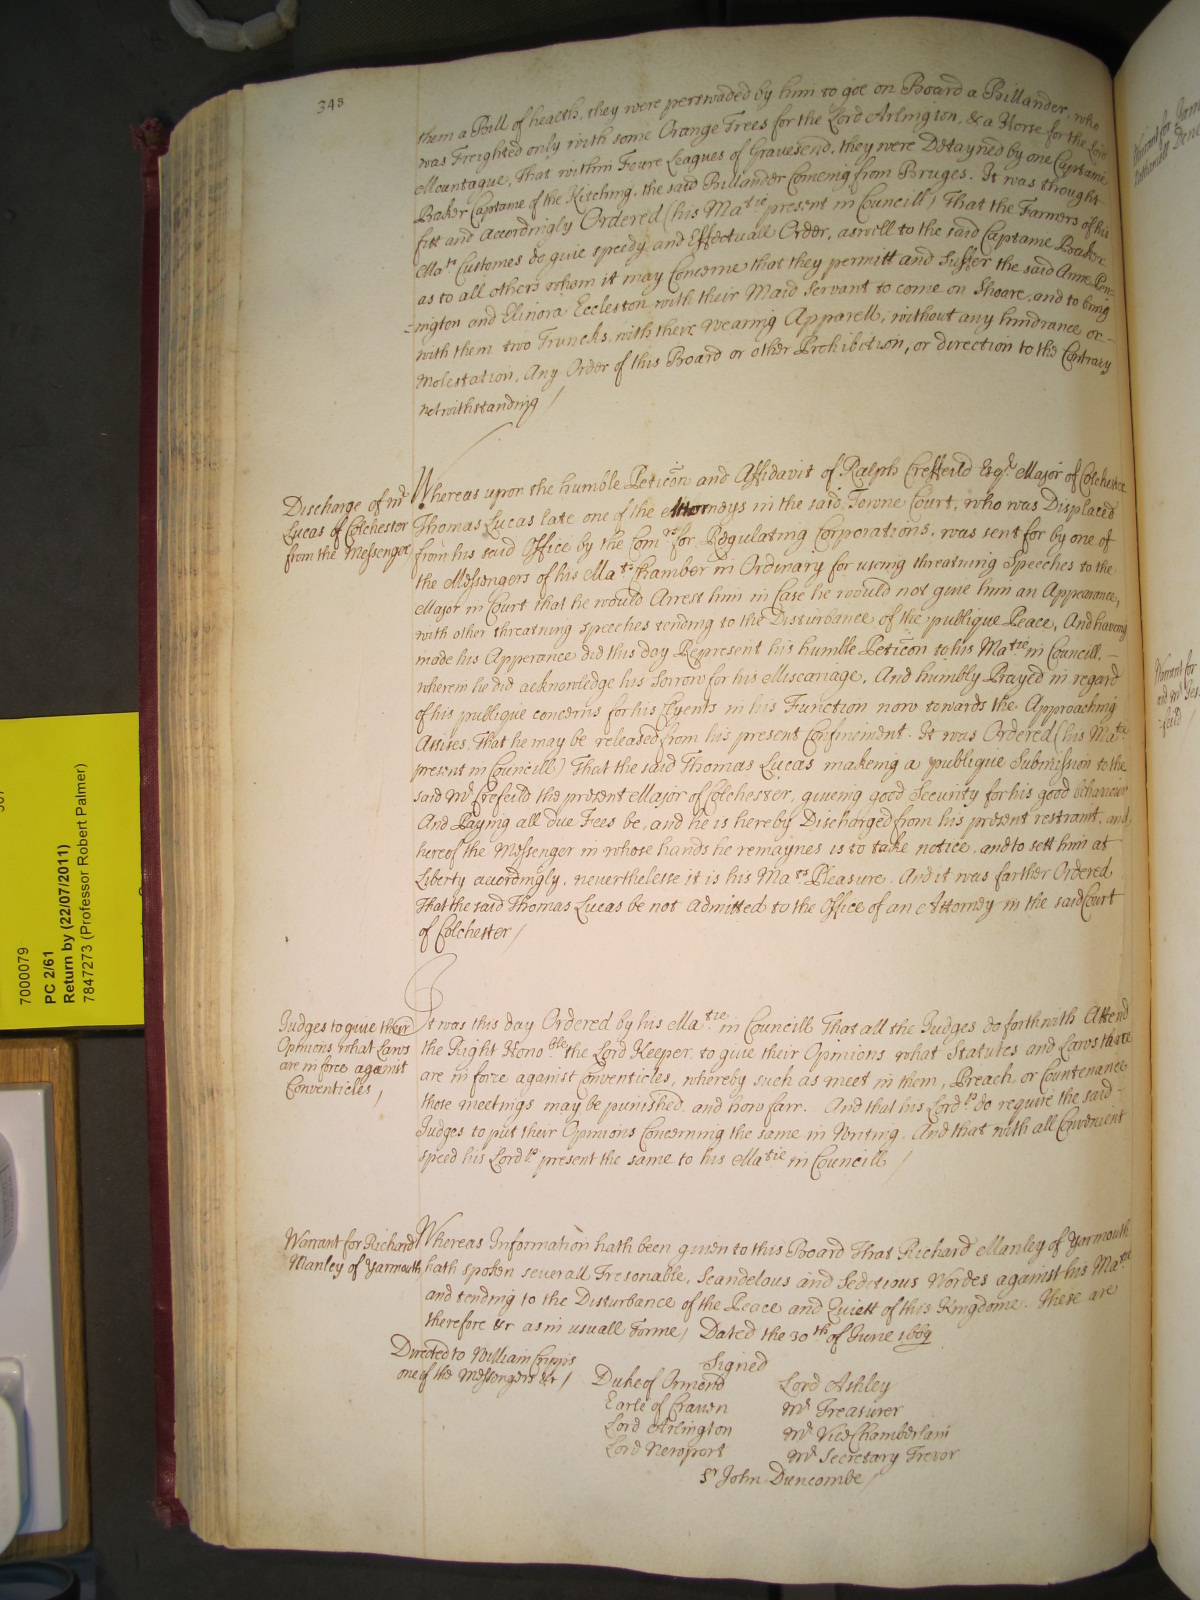 348
them a Bill of health, they were perswaded by him to goe on Board a Billander, who
was Freighted only with some Orange Trees for the Lord Arlington, & a Horse for the Lord
Mountague, That within Foure Leagues of Gravesend, they were Detayned by one Captaine
Baker Captaine of the Kitching, the said Billander Comeing from Bruges. It was thought
fitt and accordingly Ordered (his Matie present in Councill) That the Farmers of his
Mats Customes do giue speedy and Effectuall Order, aswell to the said Captaine Baker
as to all others whom it may Concerne that they permitt and Suffer the said Anne Pen
=nington and Elinora Eccleston with their Maid Servant to come on Shoare, and to bring
with them two Truncks, with their wearing Apparell, without any hindrance or
Molestation, Any Order of this Board or other Prohibition, or direction to the Contrary
notwithstanding /
Discharge of Mr
Lucas of Colchester
from the Messenger
Whereas upon the humble Peticōn and Affidavit of Ralph Creffeild Esqr. Major of Colchester
Thomas Lucas late one of the Attorneys in the said Towne Court, who was Displaced
from his said Office by the Comrs for Regulating Corporations, was sent for by one of
the Messengers of his Mats Chamber in Ordinary for useing threatning Speeches to the
Major in Court that he would Arrest him in Case he would not giue him an Appearance,
with other threatning speeches tending to the Disturbance of the publique Peace, And haveing
made his Apperance did this day Represent his humble Peticōn to his Matie in Councill,
wherein he did acknowledge his Sorrow for his Miscariage, And humbly Prayed in regard
of his publique concerns for his Clyents in his Function now towards the Approaching
Assises, That he may be released from his present Confinement. It was Ordered (his Matie
present in Councill) That the said Thomas Lucas makeing a publique Submission to the
said Mr Crefeild the present Major of Colchester, giueing good Security for his good behaviour
And Paying all due Fees be, and he is hereby Discharged from his present restraint, and
hereof the Messenger in whose hands he remaynes is to take notice, and to sett him at
Liberty accordingly, neverthelesse it is his Mats Pleasure. And it was farther Ordered
That the said Thomas Lucas be not Admitted to the Office of an Attorney in the said Court
of Colchester /
Judges to giue their
Opinions what Laws
are in force against
Conventicles /
It was this day Ordered by his Matie in Councill That all the Judges do forthwith Attend
the Right Honoble the Lord Keeper, to giue their Opinions what Statutes and Laws there
are in force against Conventicles, whereby such as meet in them, Preach, or Countenance
those meetings may be punished, and how farr. And that his Lordp do require the said
Judges to put their Opinions Concerning the same in Writing. And that with all Convenient
speed his Lordp present the same to his Matie in Councill /
Warrant for Richard
Manley of Yarmouth
Whereas Information hath been giuen to this Board That Richard Manley of Yarmouth
hath spoken severall Tresonable, Scandelous and Sedetious Wordes against his Matie
and tending to the Disturbance of the Peace and Quiett of this Kingdome. These are
therefore &c as in usuall Forme / Dated the 30th of June 1669
Directed to William Cripps
one of the Messengers &c /
Signed
Duke of Ormond Lord Ashley
Earle of Craven Mr Treasurer
Lord Arlington Mr ViceChamberlain
Lord Newport Mr Secretary Trevor
Sr John Duncombe /
7000079
PC 2/61
Return by (22/07/2011)
7847273 (Professor Robert Palmer)